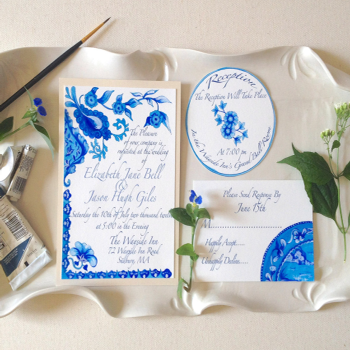 The Pleasure
of your company is
requested at the wedding
for
Elizabeth Jane Bell
&
Jason Hugh Giles
Saturday the 10th of July two thousand twelve
at 5:00 in the Evening
The Wayside Inn
72 Wayside Inn Road
Sudbury, MA
Reception
The Reception Will Take Place
At 7:00 pm
In the Wayside Inn's Grand Ball Room
Please Send Response By
June 15th
M
Happily Accept
Unhappily Decline